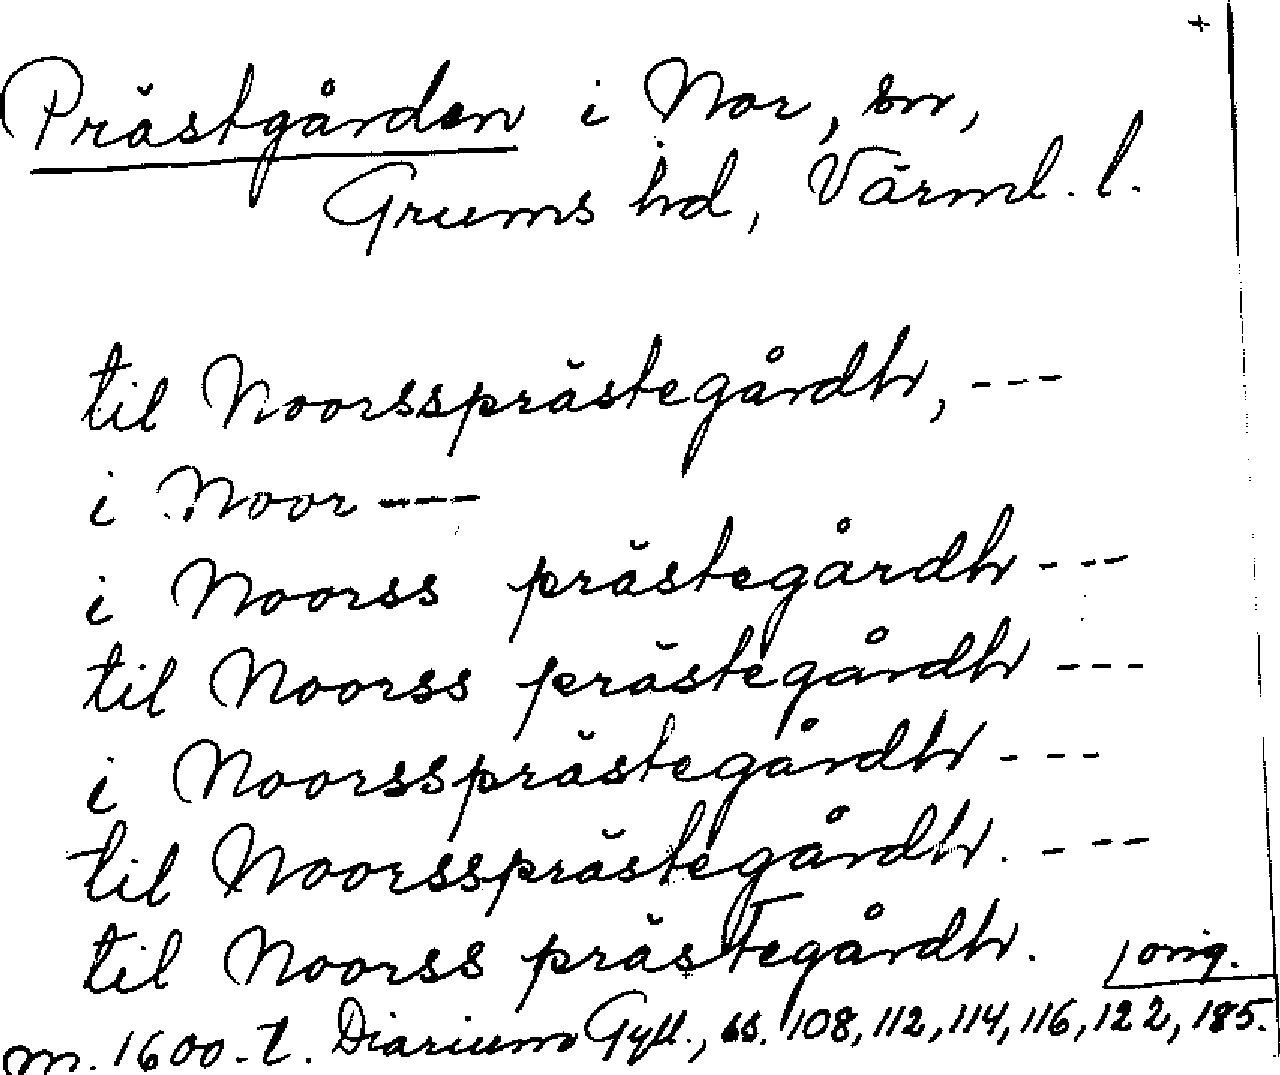 +
Prästgården i Nor, sn,
Grums hd, Värml. l.
til Noorssprästegårdh, ---
i Noor ---
i Noorss prästegårdh ---
til Noorss prästegårdh ---
i Noorssprästegårdh ---
til Noorssprästegårdh. ---
til Noorss prästegårdh. orig.
m. 1600-t. Diarium Gyll., ss. 108, 112, 114, 116, 122, 185.